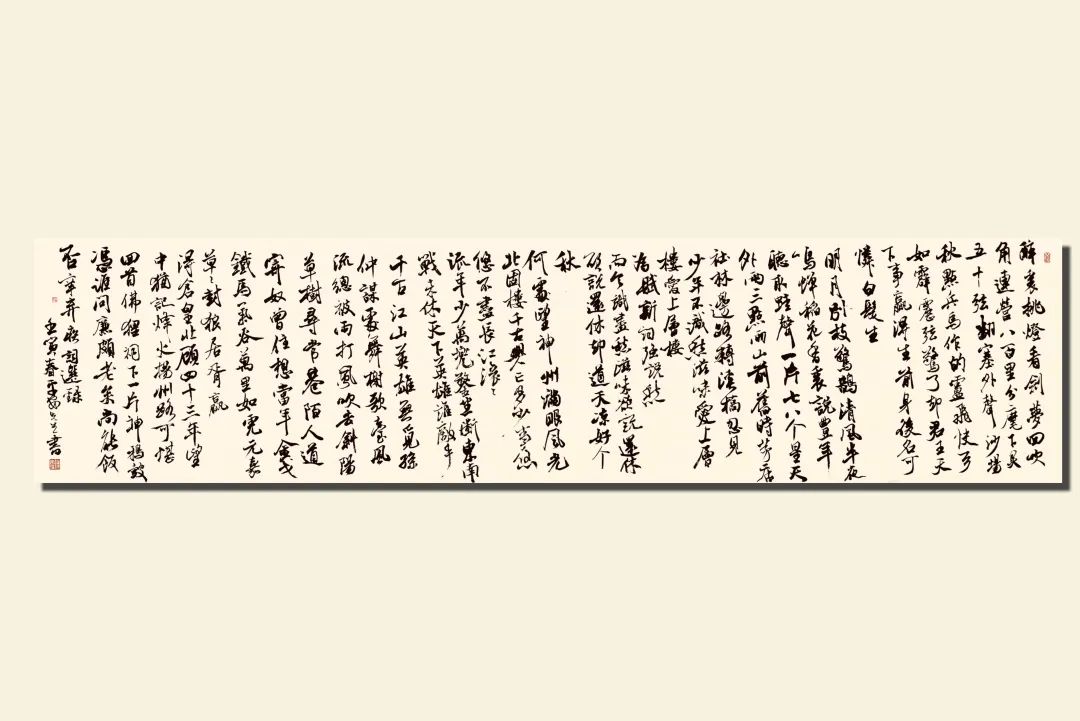 醉裏挑燈看劍夢回吹
角連營八百里分麾下炙
五十弦翻塞外聲沙場
秋點兵馬作的盧飛快弓
如霹靂弦驚了卻君王天
下事贏得生前身後名可
憐白髮生
明月別枝驚鵲清風半夜
鳴蟬稻花香裏說豐年
聽取蛙聲一片七八个星天
外兩三點雨山前舊時茅店
社林邊路轉溪橋忽見
少年不識愁滋味愛上層
樓愛上層樓
為賦新詞強說愁
而今識盡愁滋味欲說還休
欲說還休卻道天涼好个
秋
何處望神州滿眼風光
北固樓千古興亡多少事悠
悠不盡長江滾滾
流年少萬兜鍪坐斷東南
戰未休天下英雄誰敵手
千古江山英雄無覓孫
仲謀處舞榭歌臺風
流總被雨打風吹去斜陽
草樹尋常巷陌人道
寄奴曾住想當年金戈
鐵馬氣吞萬里如虎元嘉
草草封狼居胥贏
得倉皇北顧四十三年望
中猶記烽火揚州路可堪
回首佛狸祠下一片神鴉鼓
憑誰問廉頗老矣尚能飯
否辛弃疾詞選錄
壬寅春書